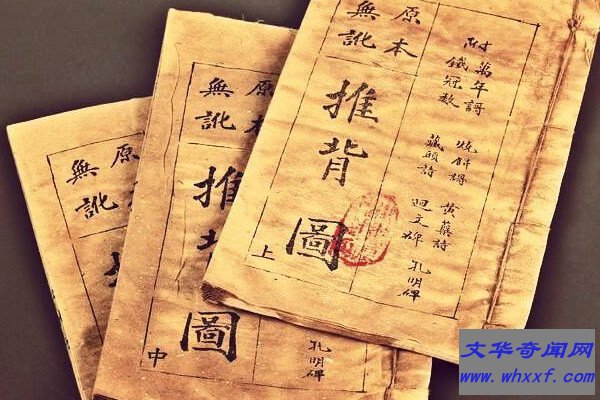 附
萬年謌 燒餅謌 黃蘗詩
鐵冠 藏頭詩 孔明碑
原本
無訛
推背圖
上
孔明碑
原本
無訛
推背圖
中
原本
無訛
文华奇闻网
www.whxxf.com